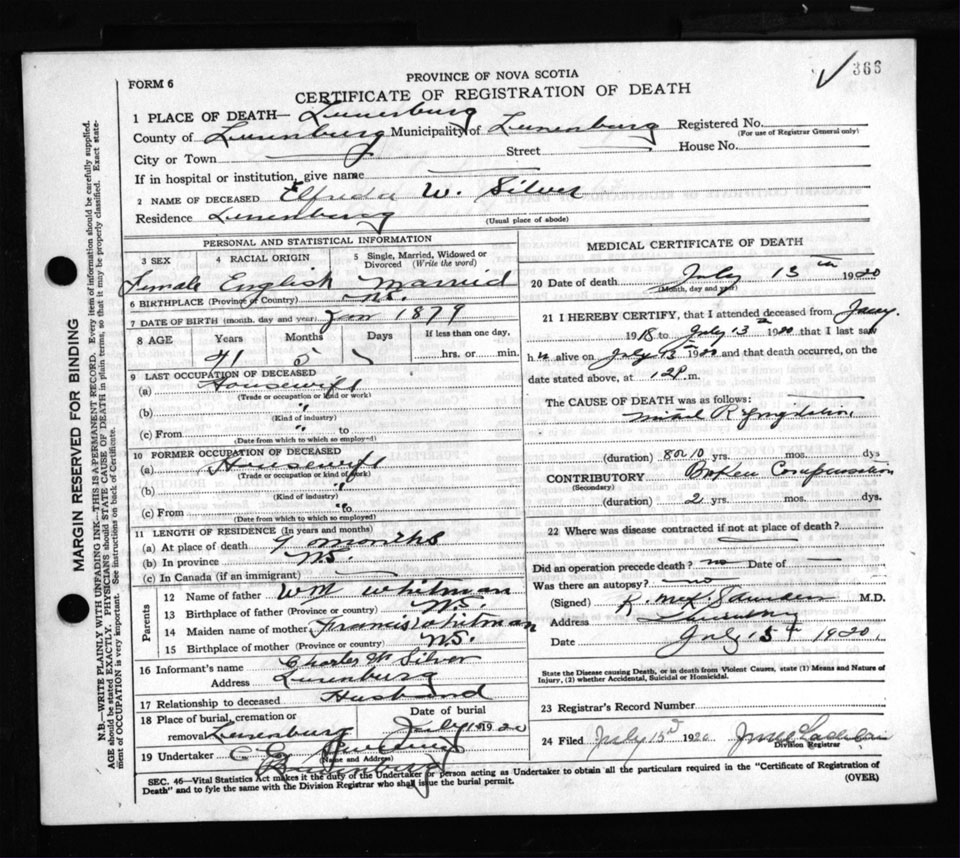 ✓ 366
FORM 6
PROVINCE OF NOVA SCOTIA
CERTIFICATE OF REGISTRATION OF DEATH
1 PLACE OF DEATH— Lunenburg
County of Lunenburg Municipality of Lunenburg Registered No.
(For use of Registrar General only)
City or Town Street House No.
If in hospital or institution, give name
2 NAME OF DECEASED Elfreda W. Silver
Residence Lunenburg
(Usual place of abode)
PERSONAL AND STATISTICAL INFORMATION
3 SEX 4 RACIAL ORIGIN 5 Single, Married, Widowed or Divorced (Write the word)
Female English Married
6 BIRTHPLACE (Province or Country) N.S.
7 DATE OF BIRTH (month, day and year) Jan 1879
8 AGE Years Months Days If less than one day,
41 5 hrs. or min.
9 LAST OCCUPATION OF DECEASED
(a) Housewife
(Trade or occupation or kind or work)
(b) "
(Kind of industry)
(c) From " to
(Date from which to which so employed)
10 FORMER OCCUPATION OF DECEASED
(a) Housewife
(Trade or occupation or kind of work)
(b) "
(Kind of industry)
(c) From " to
(Date from which to which so employed)
11 LENGTH OF RESIDENCE (In years and months)
(a) At place of death months
(b) In province N.S.
(c) In Canada (if an immigrant)
Parents
12 Name of father Wm Whitman
13 Birthplace of father (Province or country) N.S.
14 Maiden name of mother Francis Whitman
15 Birthplace of mother (Province or country) N.S.
16 Informant's name Charles W Silver
Address Lunenburg
17 Relationship to deceased Husband
18 Place of burial, cremation or removal Lunenburg Date of burial July 1920
19 Undertaker
(Name and Address)
MEDICAL CERTIFICATE OF DEATH
20 Date of death July 13th 1920
(Month, day and year)
21 I HEREBY CERTIFY, that I attended deceased from Jany.
1918 to July 13th 1920 that I last saw
h alive on July 13th 1920 and that death occurred, on the
date stated above, at 12 P m.
The CAUSE OF DEATH was as follows:
Mitral Regurgitation
(duration) 8 or 10 yrs. mos. dys
CONTRIBUTORY Broken Compensation
(Secondary)
(duration) 2 yrs. mos. dys.
22 Where was disease contracted if not at place of death?
Did an operation precede death? no Date of
Was there an autopsy? no
(Signed) M.D.
Address Lunenburg
Date July 15th 1920
State the Disease causing Death, or in death from Violent Causes, state (1) Means and Nature of
Injury, (2) whether Accidental, Suicidal or Homicidal.
23 Registrar's Record Number
24 Filed July 15th 1920
Division Registrar
SEC. 46—Vital Statistics Act makes it the duty of the Undertaker or person acting as Undertaker to obtain all the particulars required in the "Certificate of Registration of
Death" and to fyle the same with the Division Registrar who shall issue the burial permit.
(OVER)
MARGIN RESERVED FOR BINDING
N.B.—WRITE PLAINLY WITH UNFADING INK—THIS IS A PERMANENT RECORD. Every item of information should be carefully supplied.
AGE should be stated EXACTLY. PHYSICIANS should STATE CAUSE OF DEATH in plain terms, so that it may be properly classified. Exact state-
ment of OCCUPATION is very important. See instructions on back of Certificate.